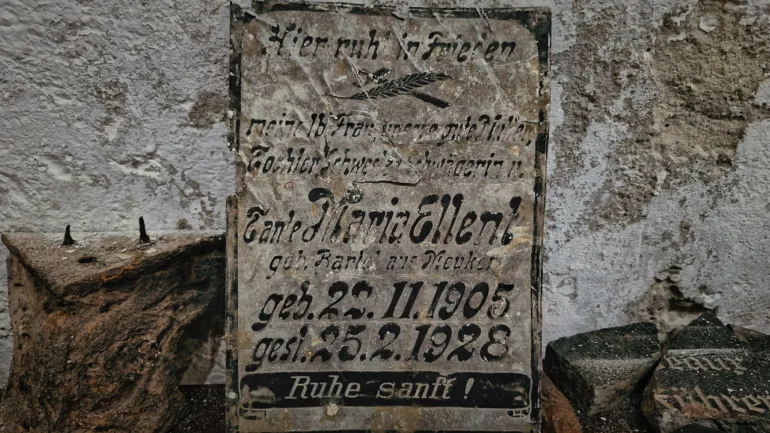 Hier ruht in Frieden
meine lb. Frau, unsere gute Mutter,
Tochter Schwester Schwägerin u.
Tante Maria Ellent
geb. aus
geb. 22. 11. 1905
gest. 25. 2. 1928
Ruhe sanft !